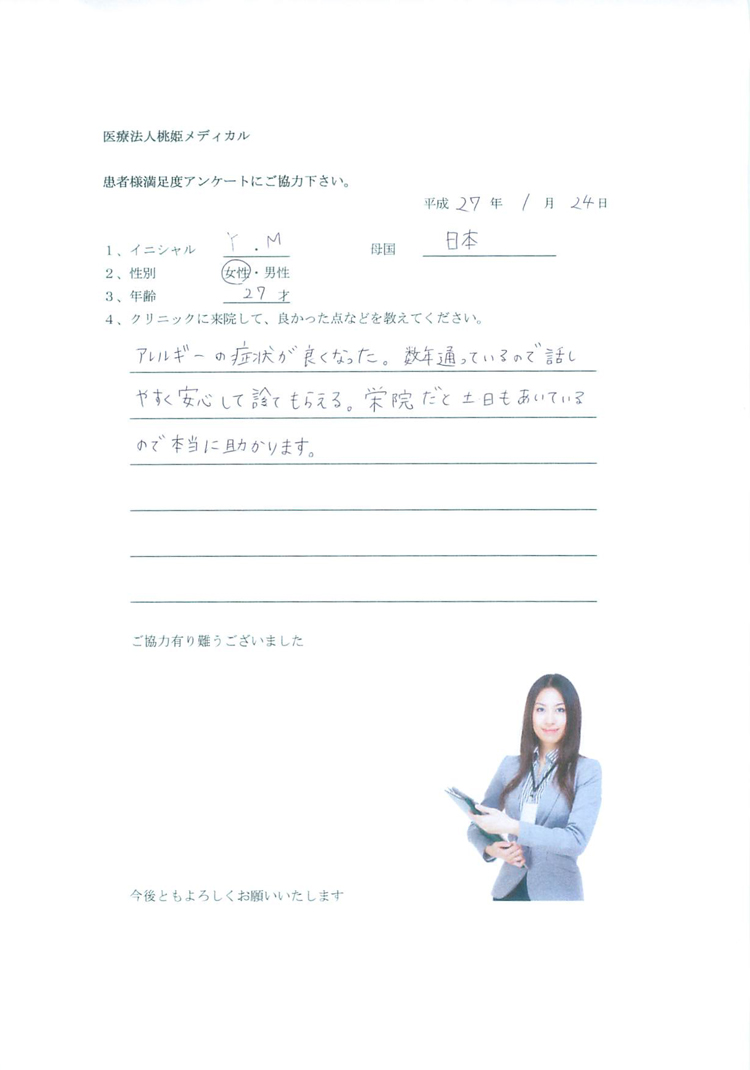 医療法人桃姫メディカル
患者様満足度アンケートにご協力下さい。
平成 27 年 1 月 24 日
1、イニシャル Y．M 母国 日本
2、性別 女性・男性
3、年齢 27 才
4、クリニックに来院して、良かった点などを教えてください。
アレルギーの症状が良くなった。数年通っているので話し
やすく安心して診てもらえる。栄院だと土日もあいている
ので本当に助かります。
ご協力有り難うございました
今後ともよろしくお願いいたします